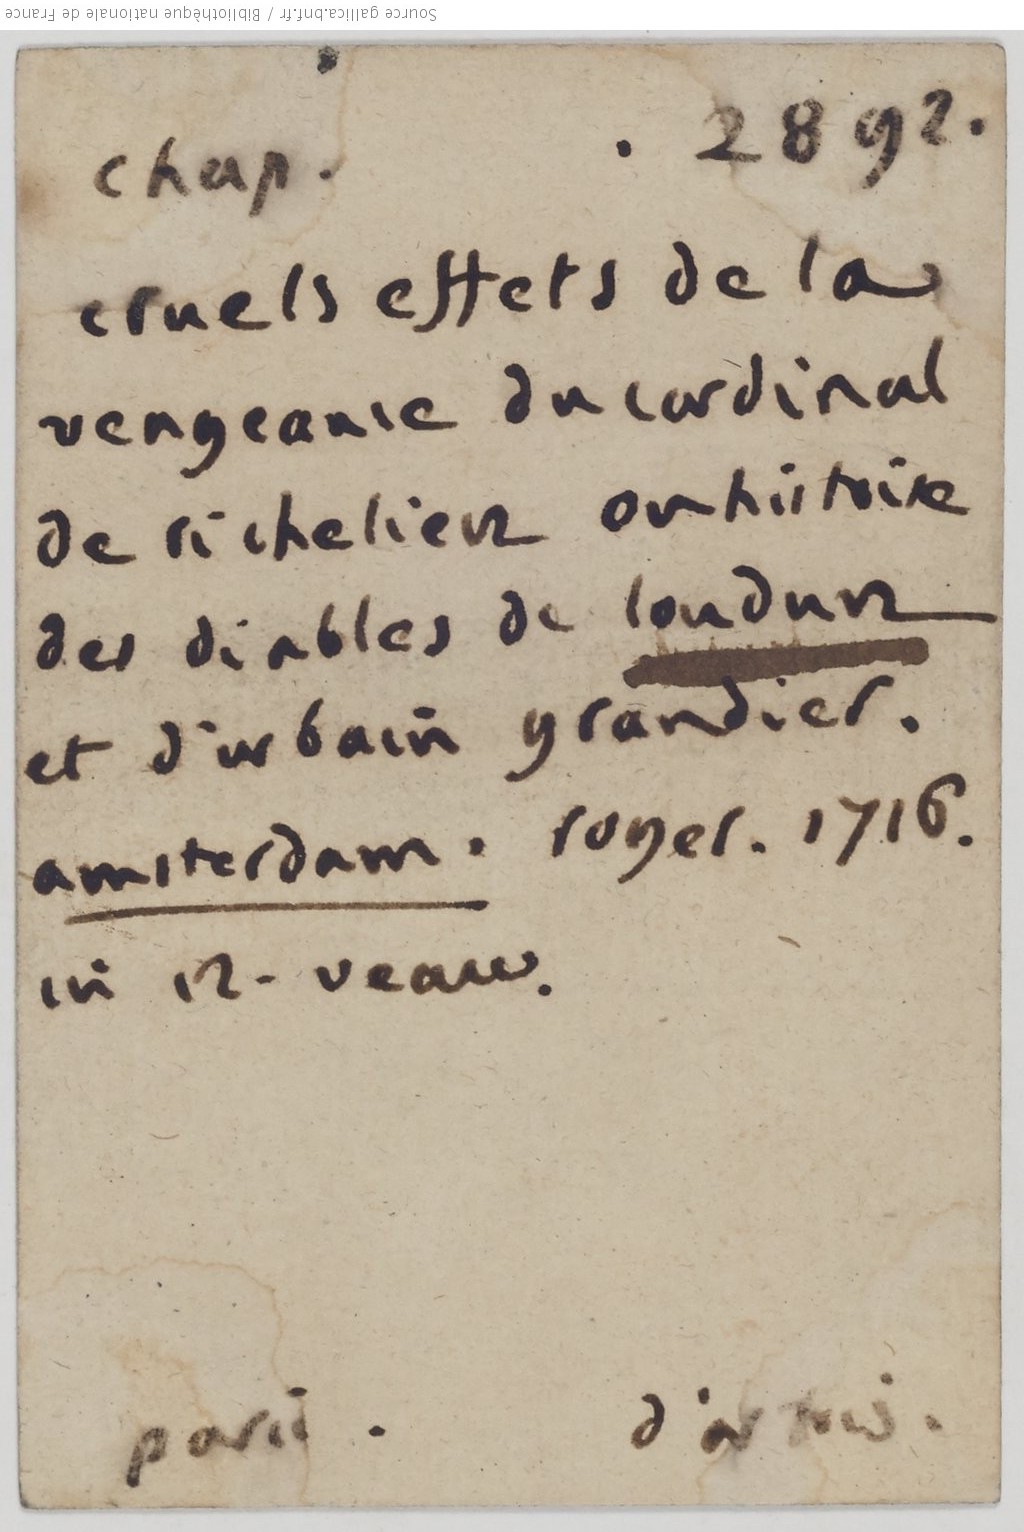 Source gallica.bnf.fr / Bibliothèque nationale de France
chap. . 2892.
cruels effets de la
vengeance du cardinal
de richelieu ou histoire
des diables de loudun
et d'urbain grandier.
amsterdam. royer. 1716.
in 12 - veau.
paris . d'artois.